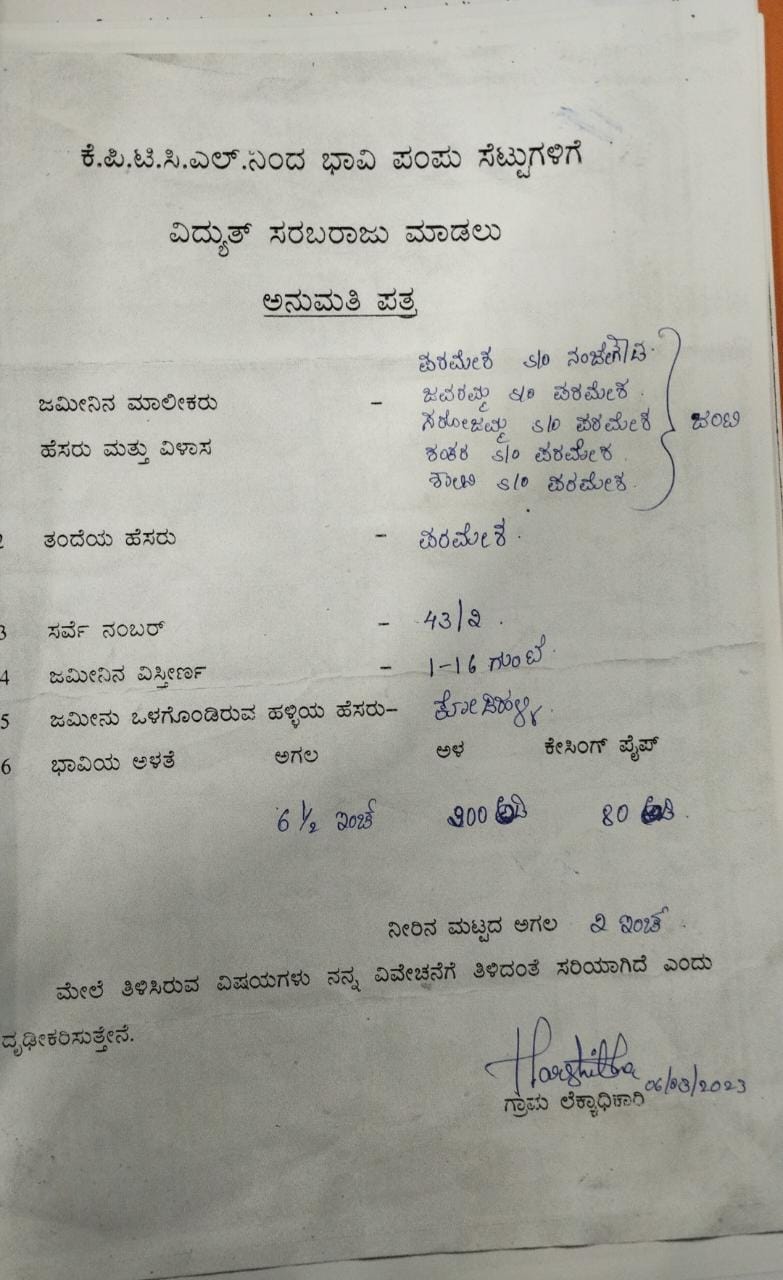 ಕೆ.ಪಿ.ಟಿ.ಸಿ.ಎಲ್.ನಿಂದ ಭಾವಿ ಪಂಪು ಸೆಟ್ಟುಗಳಿಗೆ
ವಿದ್ಯುತ್ ಸರಬರಾಜು ಮಾಡಲು
ಅನುಮತಿ ಪತ್ರ
ಪರಮೇಶ S/o ನಂಜೇಗೌಡ.
ಜಮೀನಿನ ಮಾಲೀಕರು - ಜವರಮ್ಮ S/o ಪರಮೇಶ.
ಸರೋಜಮ್ಮ S/o ಪರಮೇಶ ಜಂಟಿ
ಹೆಸರು ಮತ್ತು ವಿಳಾಸ ಶಂಕರ S/o ಪರಮೇಶ.
S/o ಪರಮೇಶ.
2 ತಂದೆಯ ಹೆಸರು - ಪರಮೇಶ.
3 ಸರ್ವೆ ನಂಬರ್ - 43/2.
4 ಜಮೀನಿನ ವಿಸ್ತೀರ್ಣ - 1-16 ಗುಂಟೆ.
5 ಜಮೀನು ಒಳಗೊಂಡಿರುವ ಹಳ್ಳಿಯ ಹೆಸರು-
6 ಭಾವಿಯ ಅಳತೆ ಅಗಲ ಅಳ ಕೇಸಿಂಗ್ ಪೈಪ್
6 1/2 ಇಂಚ್ ಅಡಿ 80 ಅಡಿ.
ನೀರಿನ ಮಟ್ಟದ ಅಗಲ 2 ಇಂಚ್.
ಮೇಲೆ ತಿಳಿಸಿರುವ ವಿಷಯಗಳು ನನ್ನ ವಿವೇಚನೆಗೆ ತಿಳಿದಂತೆ ಸರಿಯಾಗಿದೆ ಎಂದು
ದೃಢೀಕರಿಸುತ್ತೇನೆ.
Harshitha
ಗ್ರಾಮ ಲೆಕ್ಕಾಧಿಕಾರಿ